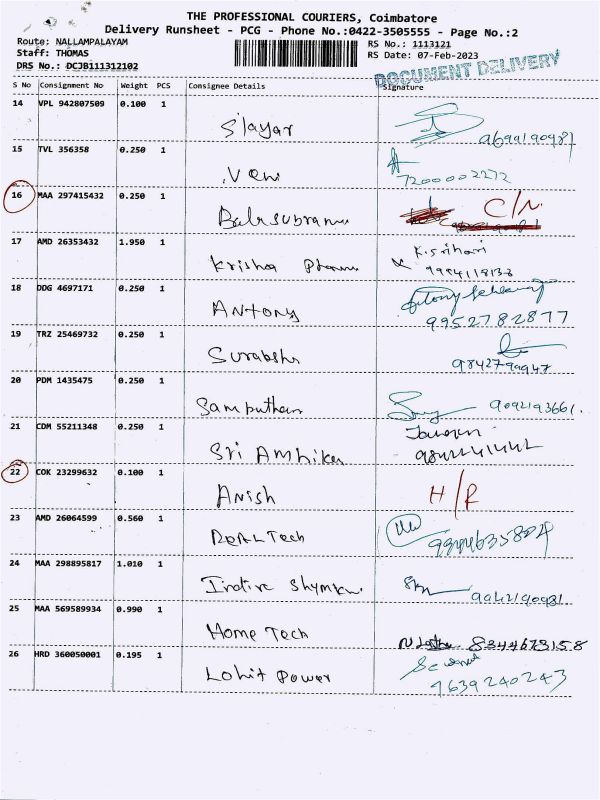 THE PROFESSIONAL COURIERS, Coimbatore
Delivery Runsheet - PCG - Phone No.:0422-3505555 - Page No.:2
Route: NALLAMPALAYAM
Staff: THOMAS
DRS No.: DCJB111312102
RS No.: 1113121
RS Date: 07-Feb-2023
DOCUMENT DELIVERY
S No Consignment No Weight PCS Consignee Details Signature
14 VPL 942807509 0.100 1 S'layar
15 TVL 356358 0.250 1 7200002272
16 MAA 297415432 0.250 1 C/N.
17 AMD 26353432 1.950 1 Krisha K.Srihari
18 DDG 4697171 0.250 1 Antony 9952782877
19 TRZ 25469732 0.250 1
20 PDM 1435475 0.250 1 9092193661.
21 CDM 55211348 0.250 1 Sri Ambika
22 COK 23299632 0.100 1 Anish H/R
23 AMD 26064599 0.560 1 Tech
24 MAA 298895817 1.010 1
25 MAA 569589934 0.990 1 Home Tech 8344673158
26 HRD 360050001 0.195 1 Lohit Power 9639240243